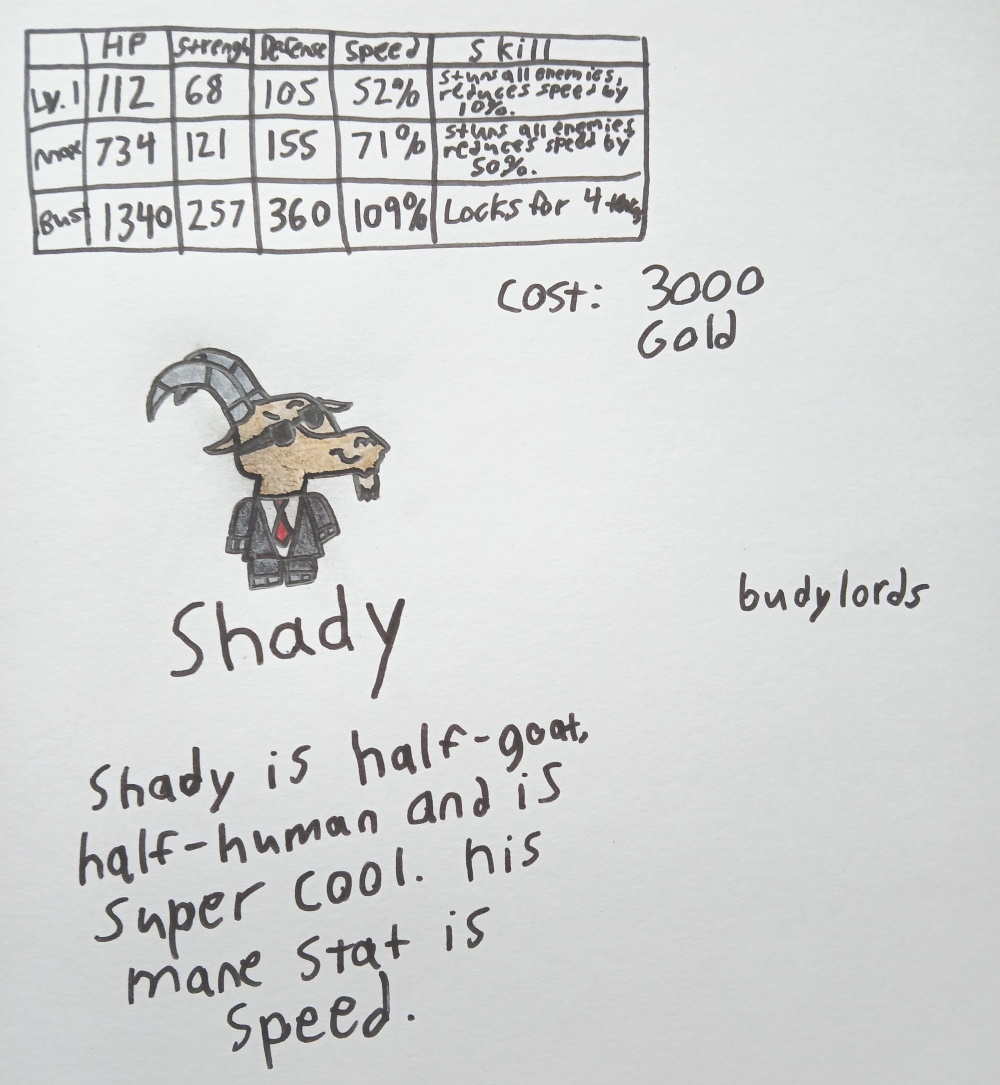 HP Strengh Defense Speed Skill
Lv.1 112 68 105 52% stuns all enemies,
reduces speed by
10%.
max 734 121 155 71% stuns all enemies
reduces speed by
50%.
Bust 1340 257 360 109% Locks for 4
Cost: 3000
Gold
Shady
budylords
Shady is half-goat,
half-human and is
super cool. his
mane stat is
speed.